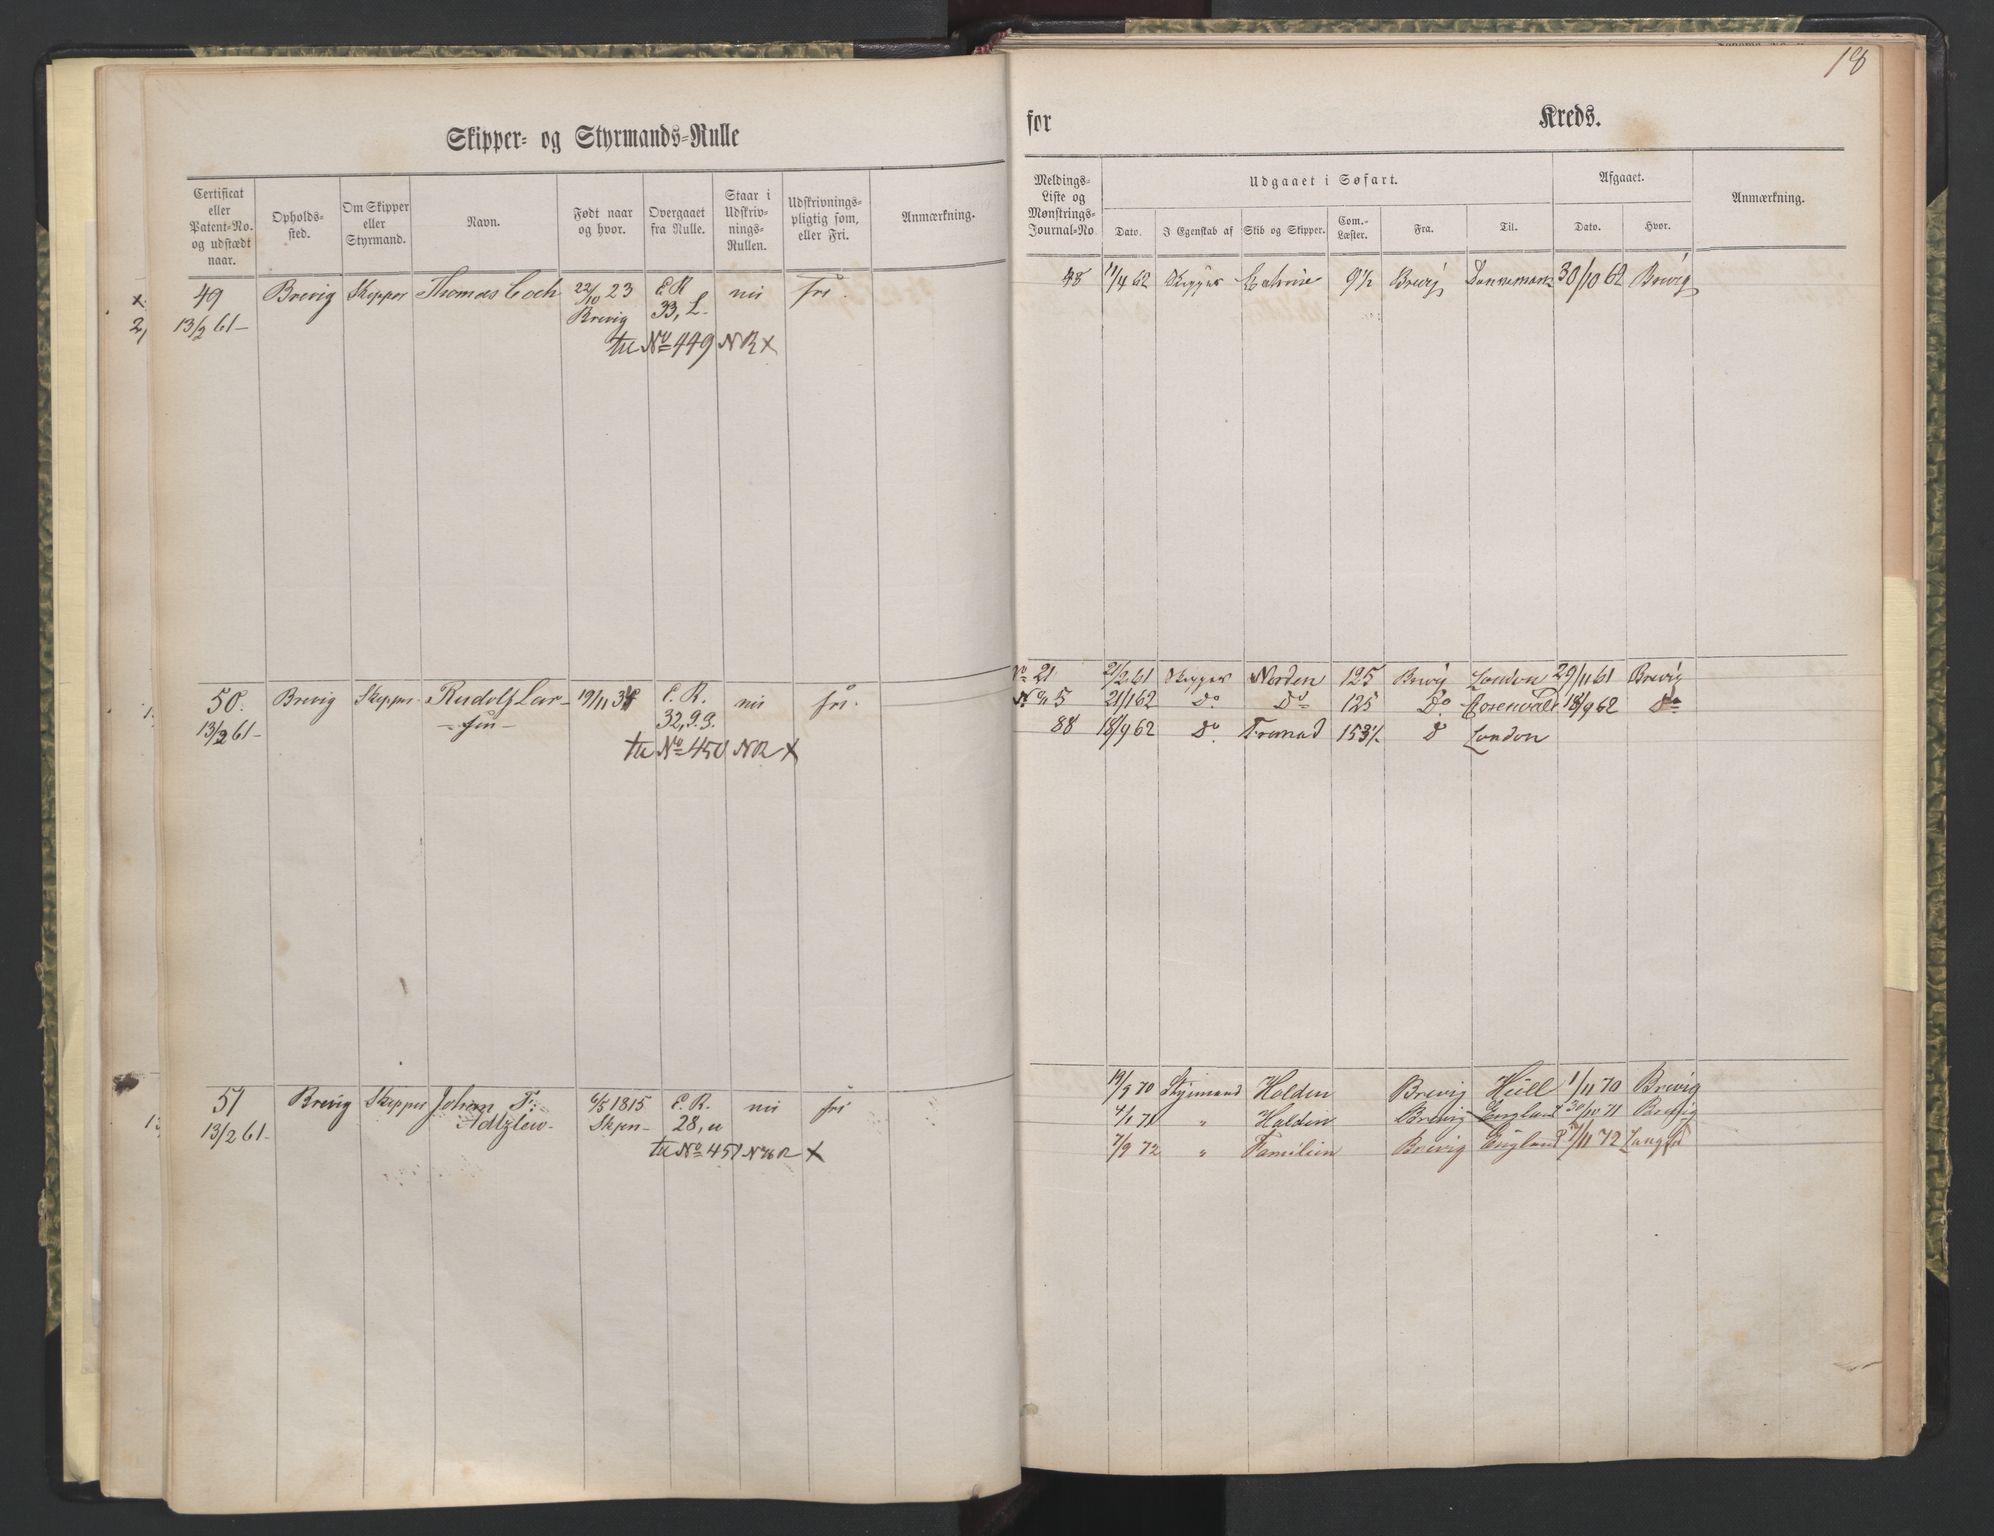 18
Skipper- og Styrmands-Rulle
for Kreds.
Certificat eller Patent-No. og udstædt naar.
Opholds-sted.
Om Skipper eller Styrmand.
Navn.
Født naar og hvor.
Overgaaet fra Rulle.
Staar i Udskriv-nings-Rullen.
Udskrivnings-pligtig som, eller Fri.
Anmærkning.
Meldings-Liste og Mønstrings-Journal-No
Udgaaet i Søfart.
Afgaaet.
Anmærkning.
Dato.
I Egenskab af
Skib og Skipper.
Com.-Læster.
Fra:
Til.
Dato.
Hvor.
49 Brevig Skipper Thomas Coch 22/10 23 E.R nei fri. 48 11/4 62 Skipper Cathrine 9½ Brevig 30/10 62 Brevig
13/2 61- Brevig 33, L.
til No 449 NR x
50. Brevig Skipper Rudolf Lar- 19/11 34 E.R. nei fri. No 21 21/2 61 Skipper Norden 125 Brevig London 29/11 61 Brevig
13/2 61- sen- 32,9.9. 5 21/1 62 Do Do 125 Do 18/9 62 Do
til No 450 NR x 88 18/9 62 Do Fremad 153½ Do London
51 Brevig Skipper Johan F: 6/5 1815 E.R. nei fri 19/9 70 Styrmand Holden Brevig Hull 1/11 70 Brevig
13/2 61- Adtzlew- Skjen- 28, u 4/1 71 " Holden Brevig England 30/10 71 Brevig
til No 451 NR x 7/9 72 " Familien Brevig England 7/11 72